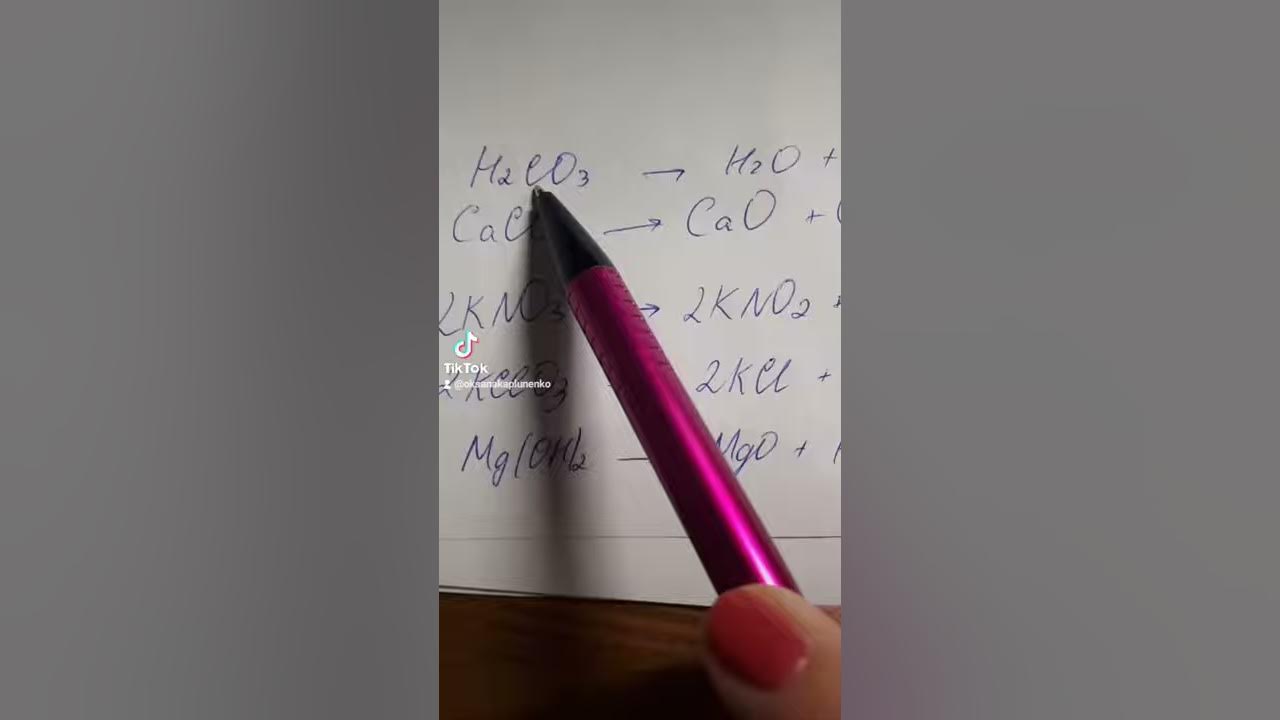 H₂CO₃ → H₂O +
CaC → CaO +
2KNO₃ → 2KNO₂ +
TikTok
@oksanakaplunenko
2KClO₃ 2KCl +
Mg(OH)₂ — MgO +